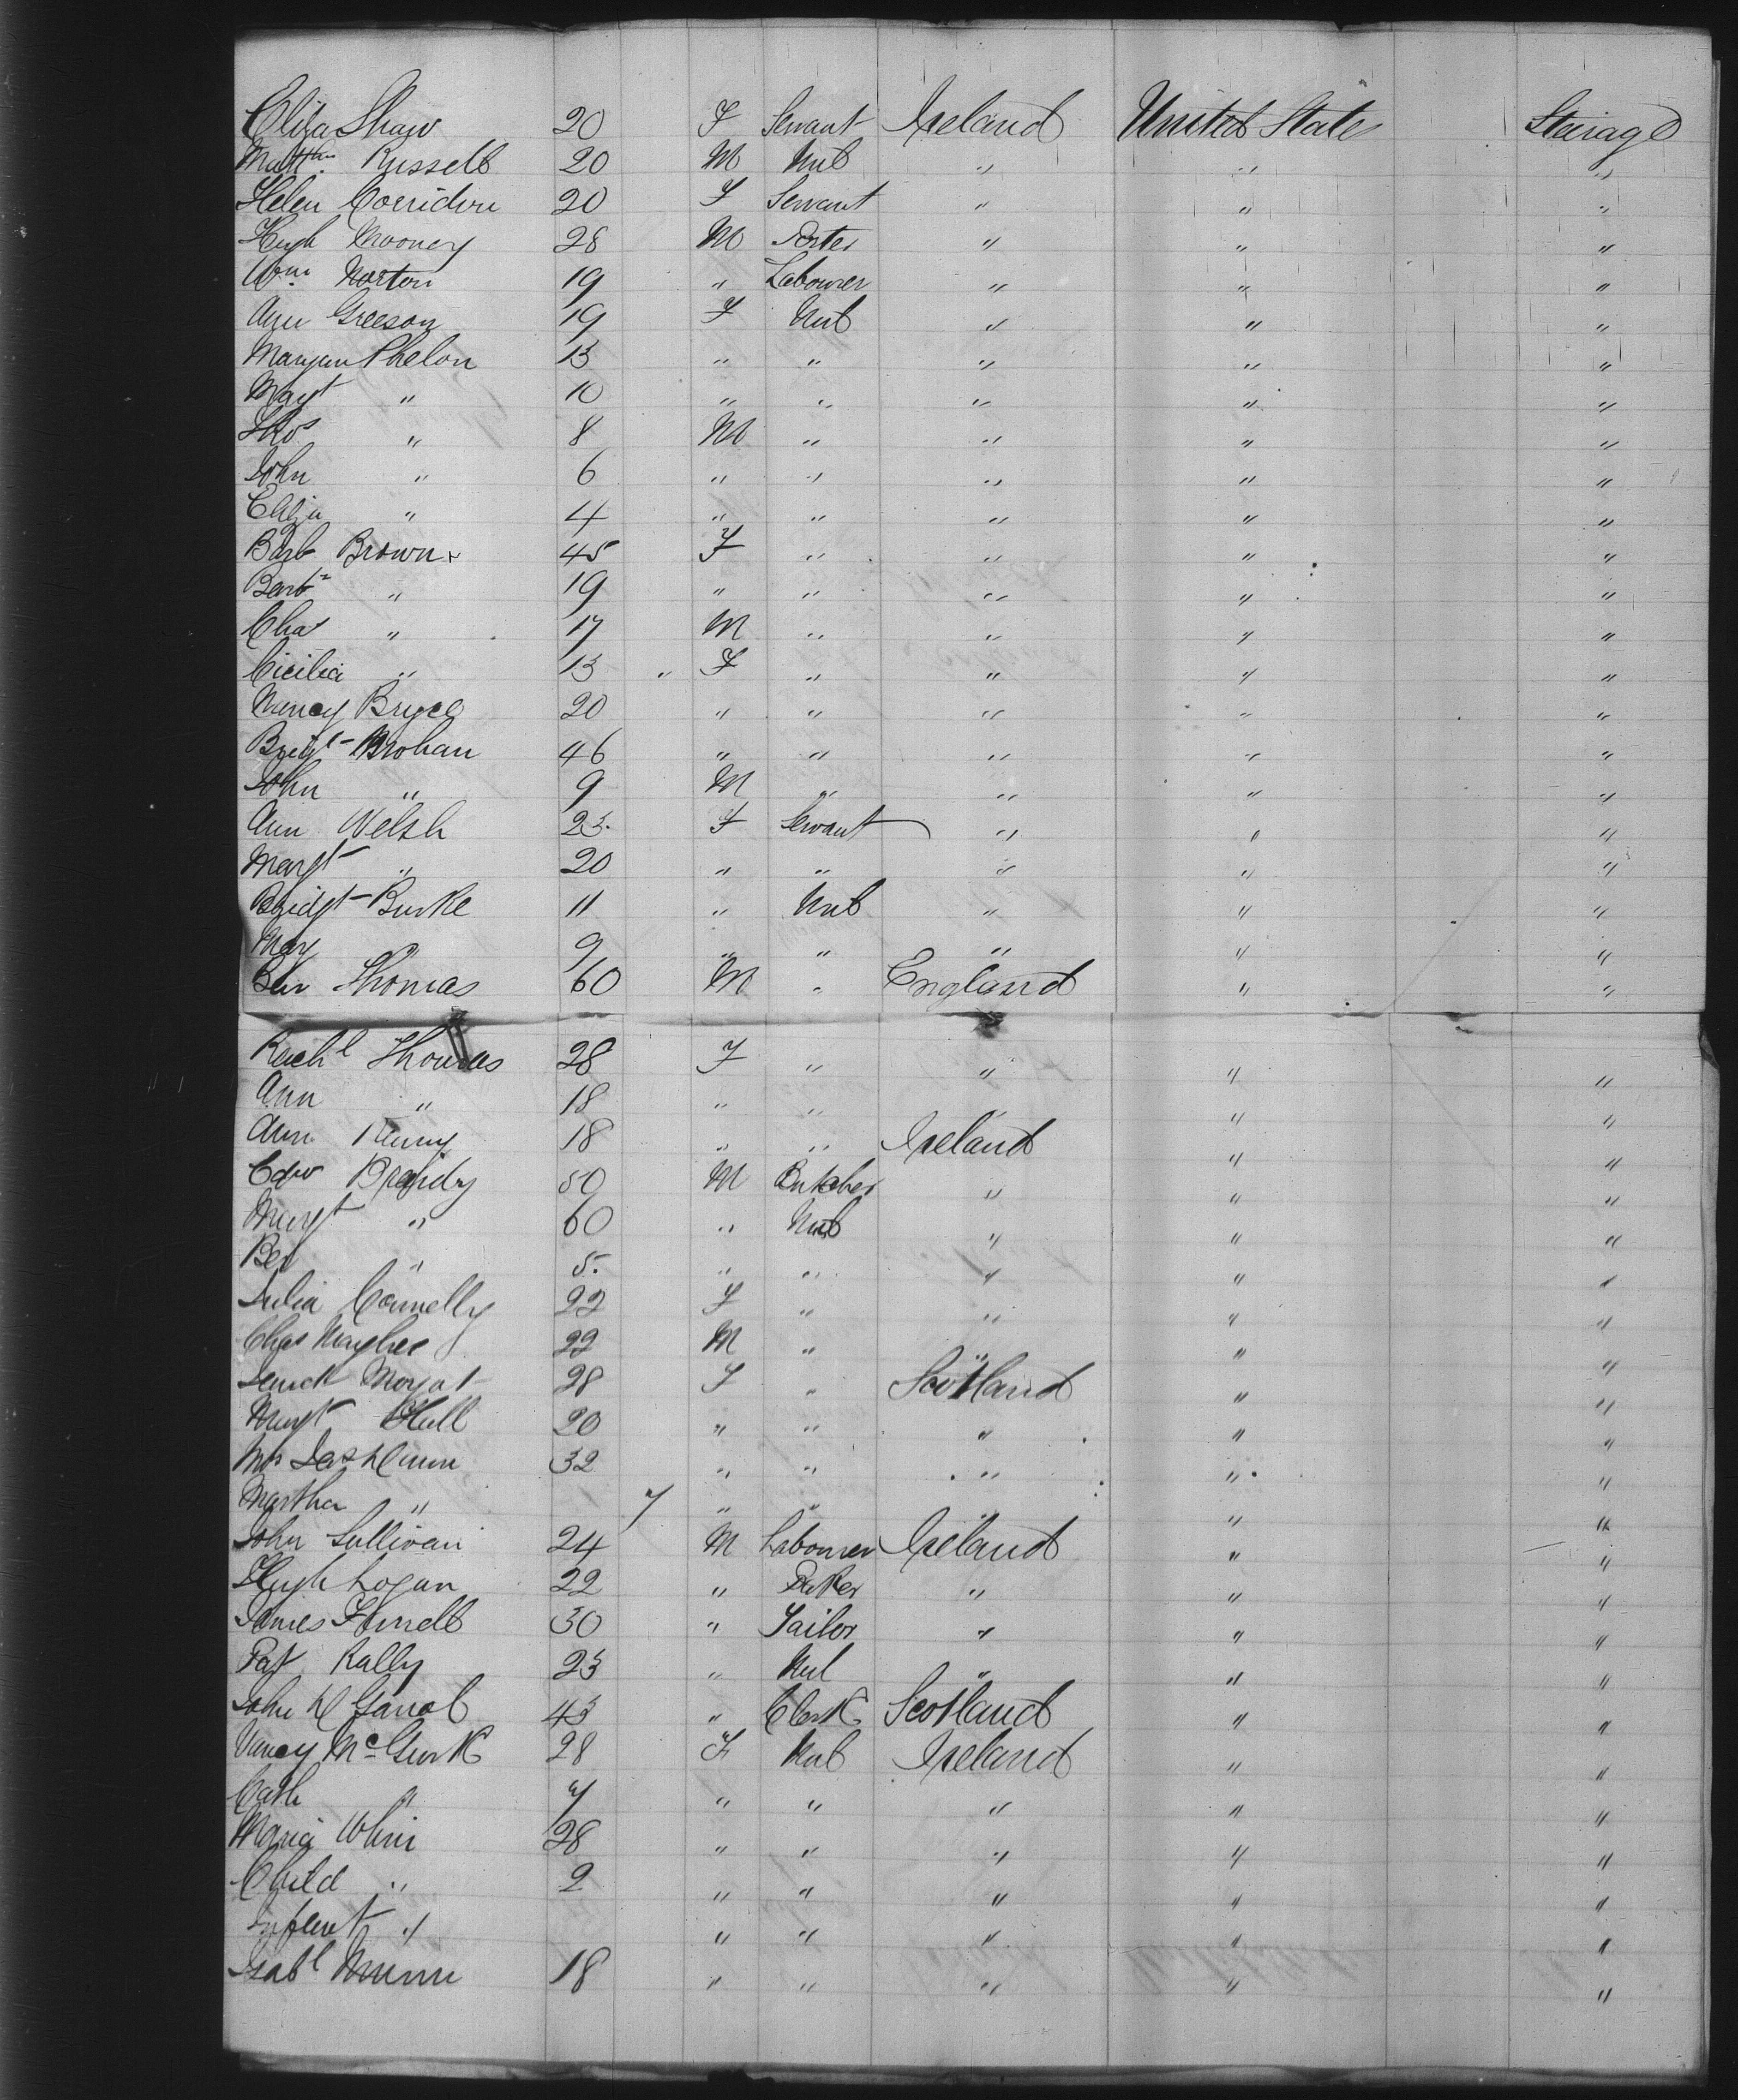 Eliza Shaw 20 F Servant Ireland United States Stairage
Mattw. Russell 20 M Nul " " "
Helen Corridon 20 F Servant " " "
Hugh Mooney 28 M Porter " " "
Wm. Norton 19 " Labourer " " "
Ann Greeson 19 F Nul " " "
Maryann Phelon 13 " " " " "
Magt " 10 " " " " "
Thos " 8 M " " " "
John " 6 " " " " "
Eliza " 4 " " " " "
Barb Brown 45 F " " " "
Barb " 19 " " " " "
Chas " 17 M " " " "
Cicilia " 13 " F " " " "
Nancy Bryce 20 " " " " "
Bridgt Brohan 46 " " " " "
John " 9 M " " " "
Ann Welsh 23 F Servant " " "
Margt " 20 " " " " "
Bridgt Burke 11 " Nul " " "
May 9 " " " " "
Thomas 60 M " England " "
Rachl Thomas 28 F " " " "
Ann " 18 " " " " "
Ann Kenny 18 " " Ireland " "
Edw Brandy 50 M Butcher " " "
Margt " 60 " Nul " " "
" 5 " " " " "
Julia Connelly 22 F " " " "
Chas Maghee 22 M " " " "
28 F " Scotland " "
Margt Hull 20 " " " " "
Mrs 32 " " " " "
Martha " 7 " " " " "
John Sullivan 24 M Labourer Ireland " "
Hugh Logan 22 " Baker " " "
James 30 " Tailor " " "
Pat Rally 23 " Nul " " "
John 43 " Clerk Scotland " "
Nancy McGurk 28 F Nul Ireland " "
Cath " 7 " " " " "
Maria 28 " " " " "
Child " 2 " " " " "
Infant " " " " " "
Isabl Munn 18 " " " " "